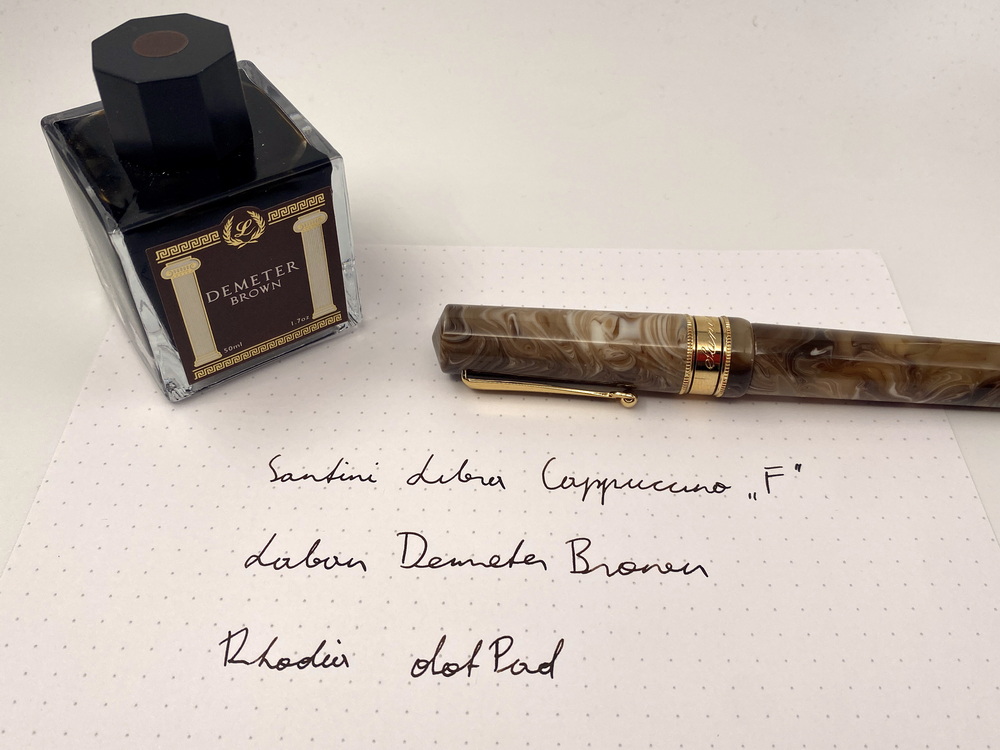 L
DEMETER
BROWN
50ml 1.7oz
Santini Libra Cappuccino „F"
Laban Demeter Brown
Rhodia dotPad